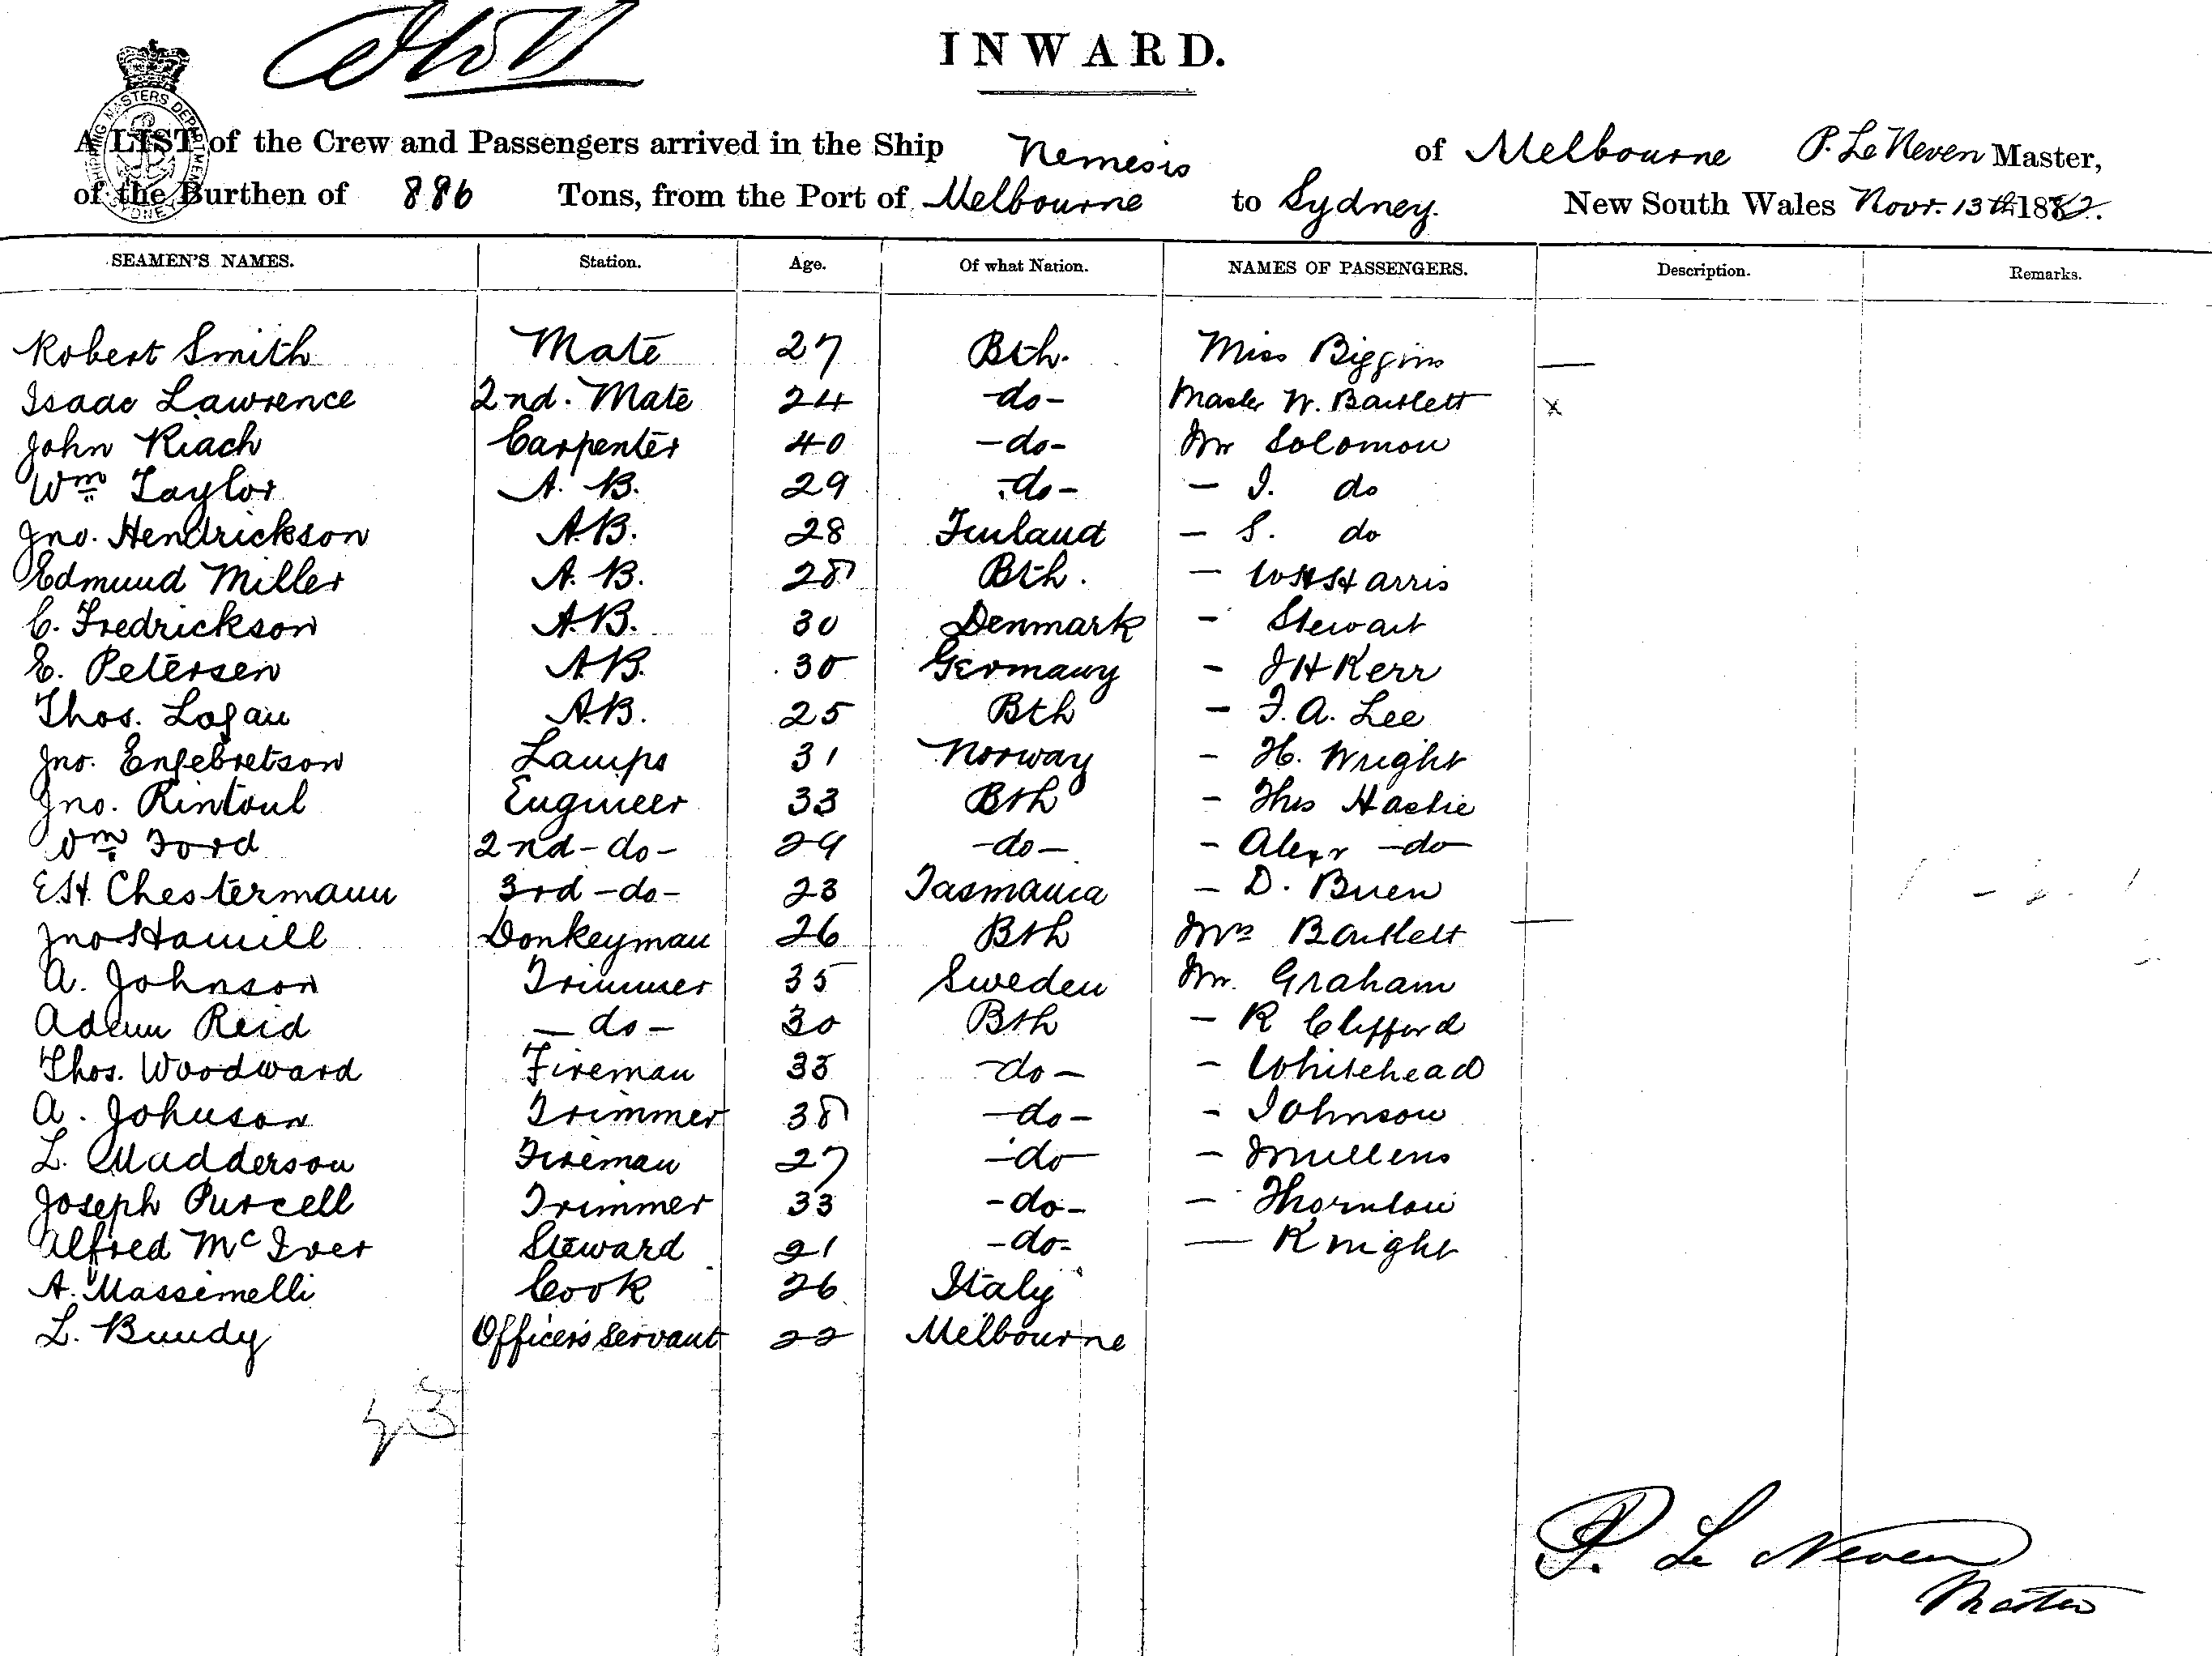 INWARD.
SHIPPING MASTERS DEPARTMENT SYDNEY
A LIST of the Crew and Passengers arrived in the Ship Nemesis of Melbourne P. Le Neven Master,
of the Burthen of 886 Tons, from the Port of Melbourne to Sydney. New South Wales Novr. 13th 1882.
SEAMEN'S NAMES. Station. Age. Of what Nation. NAMES OF PASSENGERS. Description. Remarks.
Robert Smith Mate 27 Bth. Miss Biggins —
Isaac Lawrence 2nd. Mate 24 -do- Master W. Bartlett x
John Riach Carpenter 40 -do- Mr Solomon
Wm. Taylor A. B. 29 -do- - I. do
Jno. Hendrickson A.B. 28 Finland - S. do
Edmund Miller A. B. 28 Bth. - W H Harris
C. Fredrickson A.B. 30 Denmark - Stewart
E. Petersen A.B. 30 Germany - J H Kerr
Thos. Logan A.B. 25 Bth - F. A. Lee
Jno. Engebretson Lamps 31 Norway - H. Wright
Jno. Rintoul Engineer 33 Bth - Thos Hastie
Wm. Ford 2nd -do- 29 -do- - Alexr -do-
E.H. Chestermann 3rd -do- 23 Tasmania - D. Buen
Jno Hamill Donkeyman 26 Bth Mrs Bartlett —
A. Johnson Trimmer 35 Sweden Mr. Graham
Adam Reid -do- 30 Bth - R Clifford
Thos. Woodward Fireman 35 -do- - Whitehead
A. Johnson Trimmer 38 -do- - Johnson
L. Madderson Fireman 27 -do- - Mullens
Joseph Purcell Trimmer 33 -do- - Thornlow
Alfred McIver Steward 21 -do- - Knight
A. Massimelli Cook 26 Italy
L. Bundy Officers Servant 22 Melbourne
23
P. Le Neven
Master